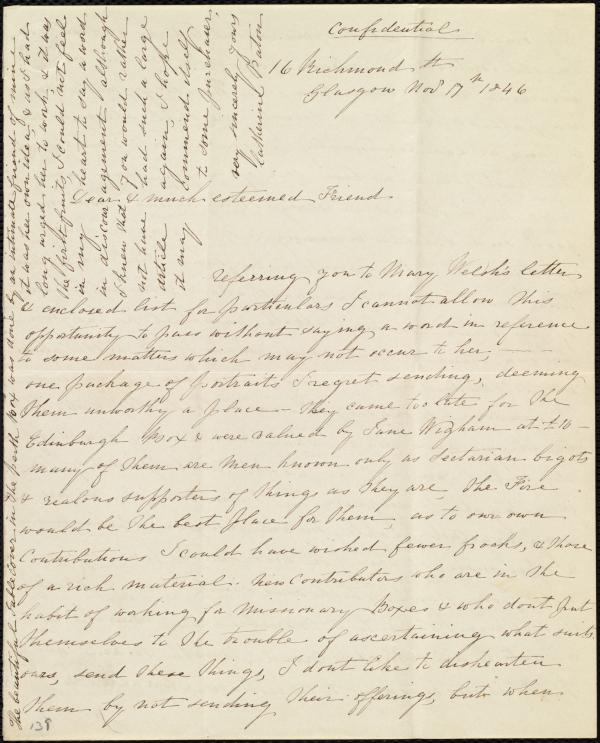 Confidential
16 Richmond St
Glasgow Nov 17th 1846
Dear & much esteemed Friend
referring you to Mary Welsh's letter
& enclosed list for particulars I cannot allow this
opportunity to pass without saying a word in reference
to some matters which may not occur to her, — —
one package of portraits I regret sending, deeming
them unworthy a place – they came too late for the
Edinburgh Box & were valued by Jane Wigham at £10 –
many of them are men known only as Sectarian bigots
& zealous supporters of things as they are, The Fire
would be the best place for them, as to our own
Contributions I could have wished fewer frocks, & those
of a rich material. New Contributors who are in the
habit of working for Missionary Boxes & who dont put
themselves to the trouble of ascertaining what suits
ours, send these things, I dont like to dishearten
them by not sending their offerings, but when
The beautiful tablecover in the Perth Box was done by an intimate friend of mine
it was her own idea, & as I had
long urged her to work, & it was
the first fruits, I could not feel
in my heart to say a word
in discouragement although
I knew that you would rather
not have had such a large
article again, I hope
it may commend itself
to some purchaser,
very sincerely yours
Catherine Paton
139